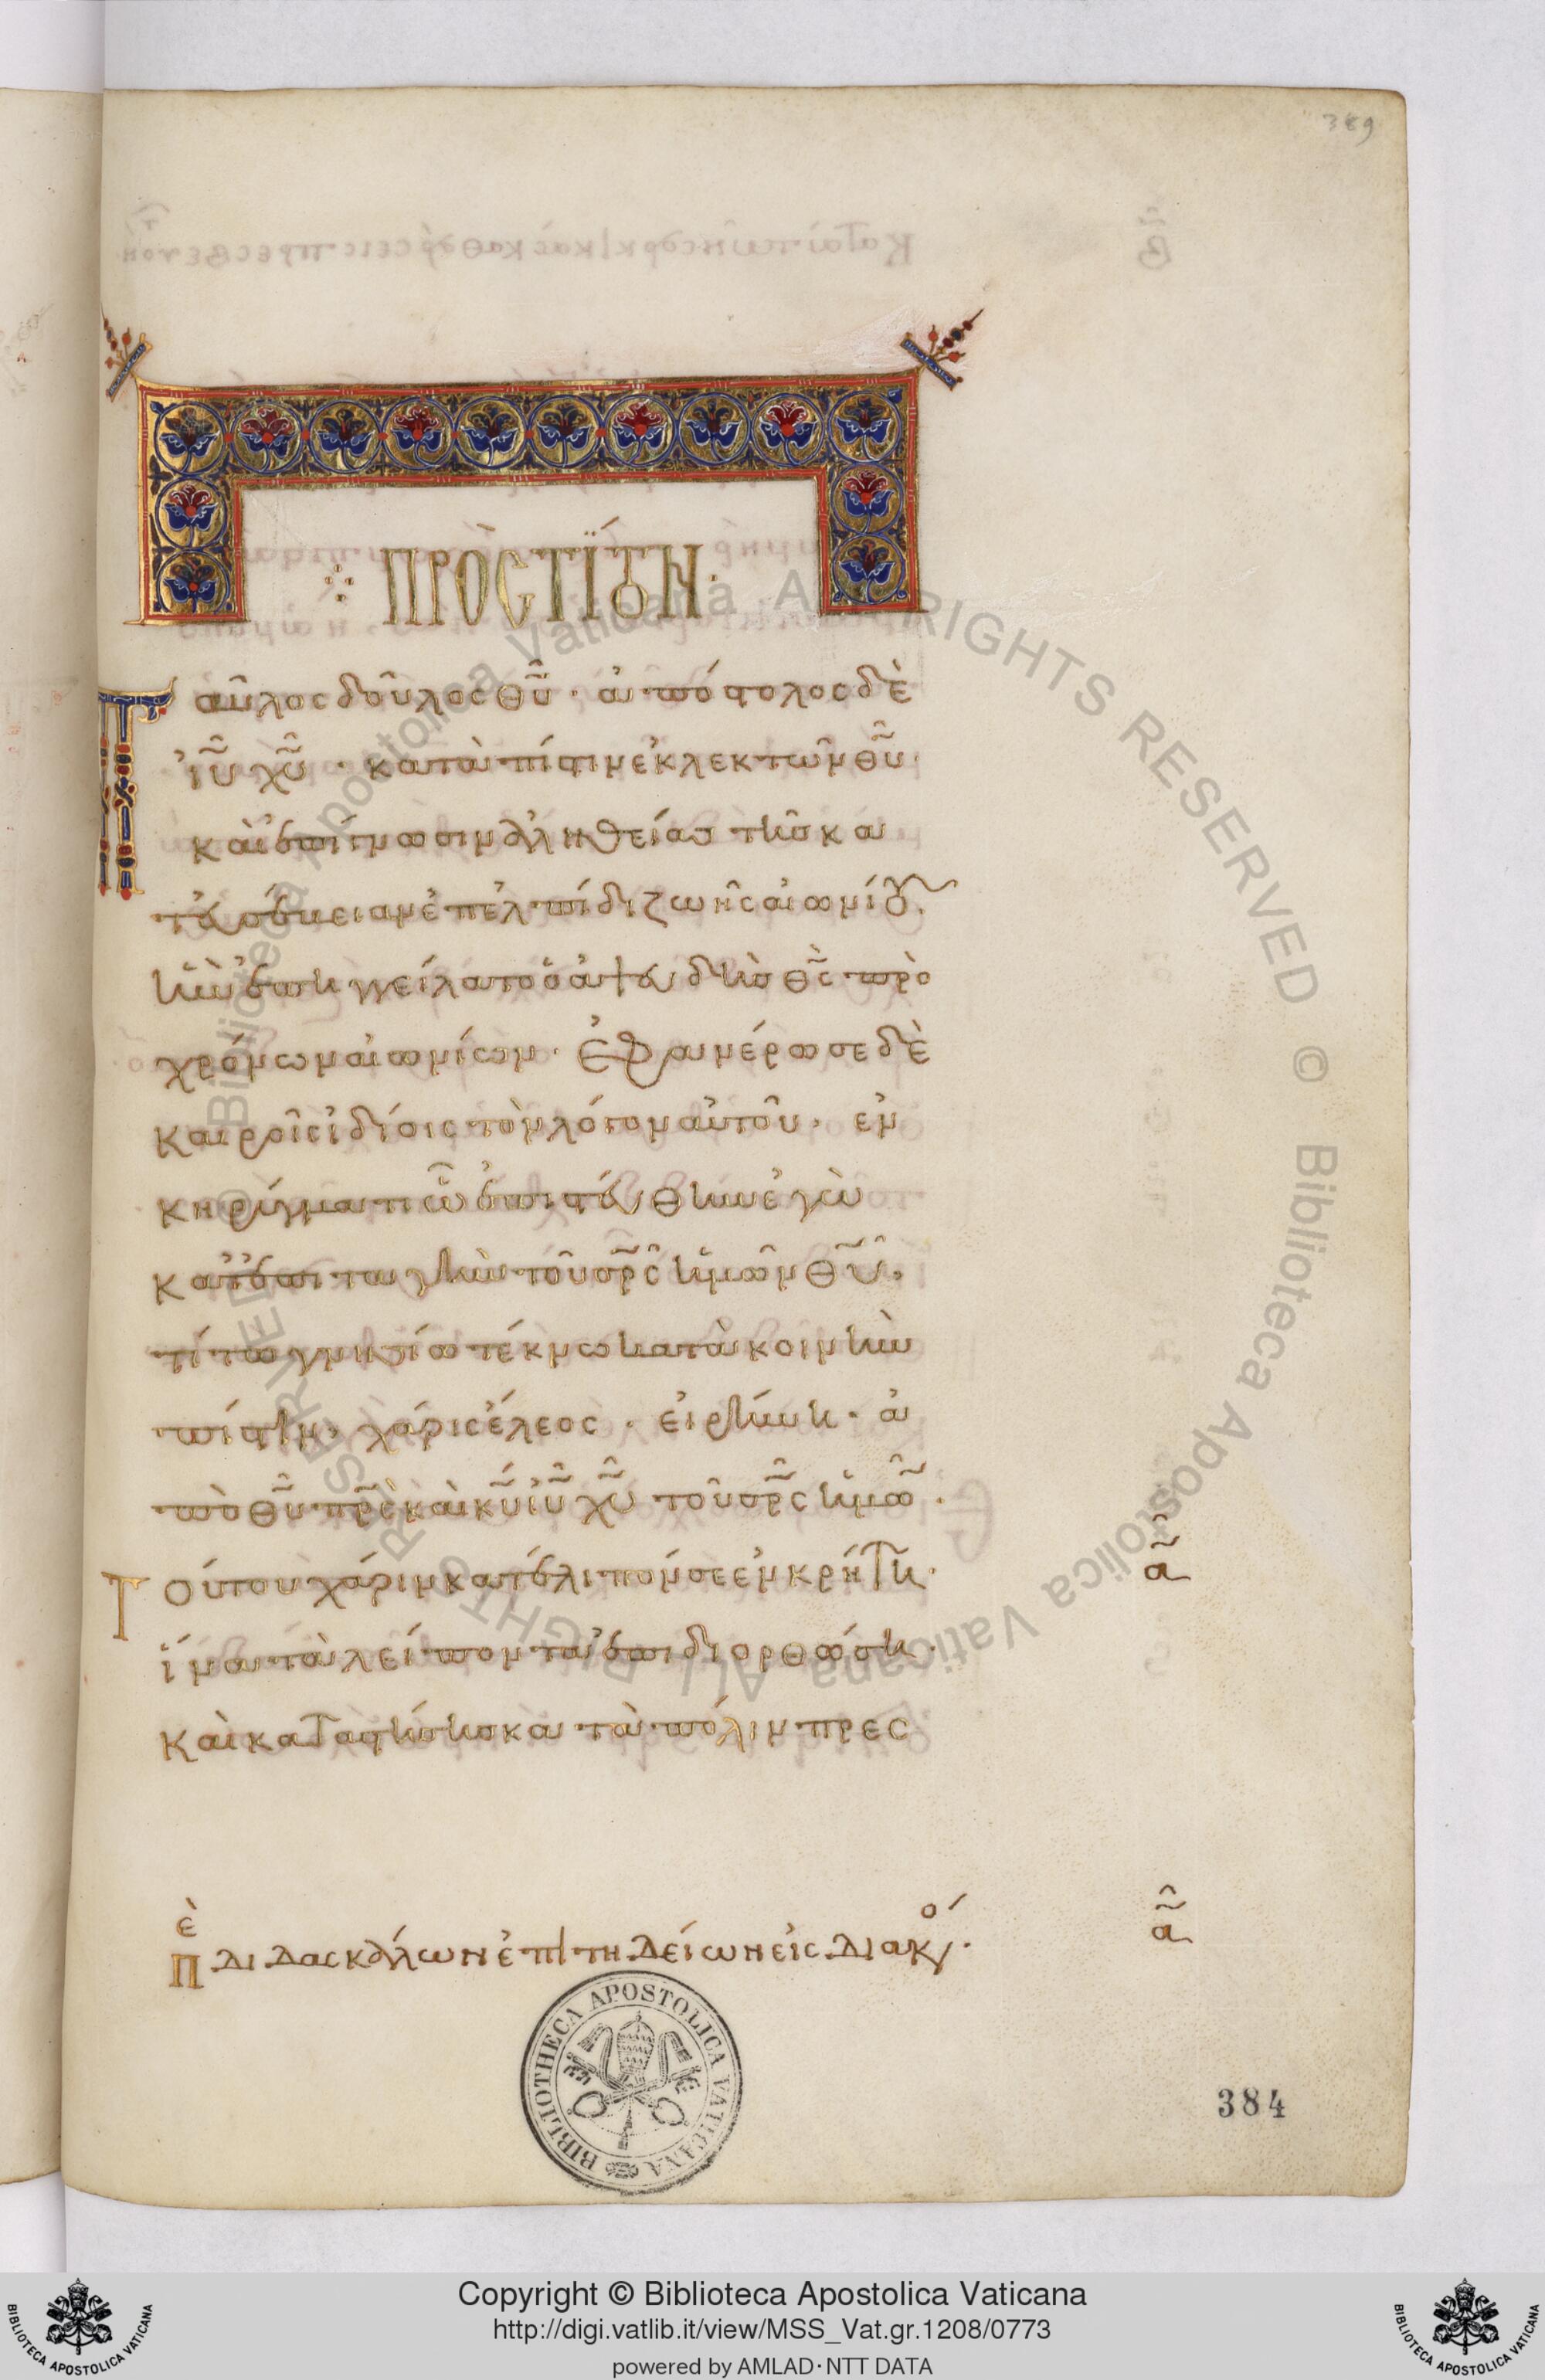 389
ΠΡΟΣ ΤΙΤΟΝ·
Παῦλος δοῦλος θῦ· ἀπόστολος δὲ
ἰῦ χῦ· κατὰ πίστιν ἐκλεκτῶν θῦ·
καὶ ἐπίγνωσιν ἀληθείας τῆς κα
τ' εὐσέβειαν ἐπ' ἐλπίδι ζωῆς αἰωνίου.
ἣν ἐπηγγείλατο ὁ ἀψευδὴς θς πρὸ
χρόνων αἰωνίων· ἐφανέρωσε δὲ
καιροῖς ἰδίοις τὸν λόγον αὐτοῦ· ἐν
κηρύγματι ὃ ἐπιστεύθην ἐγὼ
κατ' ἐπιταγὴν τοῦ σρς ἡμῶν θῦ·
τίτω γνησίω τέκνω κατὰ κοινὴν
πίστιν, χάρις ἔλεος· εἰρήνη· ἀ
πὸ θῦ πρς καὶ κῦ ἰῦ χῦ τοῦ σρς ἡμῶ·
Τούτου χάριν κατέλιπόν σε ἐν κρήτη· α
ἵνα τὰ λείποντα ἐπιδιορθώση·
καὶ καταστήσης κατὰ πόλιν πρες
ἐ
π διδασκάλων ἐπιτηδείων εἰς διακο· α
BIBLIOTHECA APOSTOLICA VATICANA
384
© Biblioteca Apostolica Vaticana ALL RIGHTS RESERVED © Biblioteca Apostolica Vaticana ALL RIGHTS RESERVED
BIBLIOTECA APOSTOLICA VATICANA
Copyright © Biblioteca Apostolica Vaticana
http://digi.vatlib.it/view/MSS_Vat.gr.1208/0773
powered by AMLAD·NTT DATA
BIBLIOTECA APOSTOLICA VATICANA